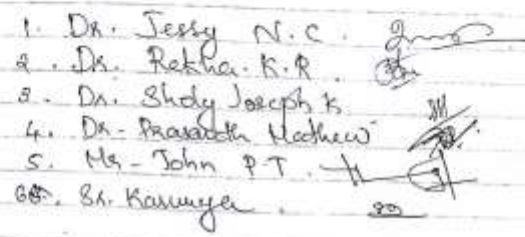 1. Dr. Jessy N.C.
2. Dr. Rekha. K.R.
3. Dr. Sholy Joseph K
4. Dr - Prasanth Mathew
5. Mr - John P.T.
6. Sr. Karunya.